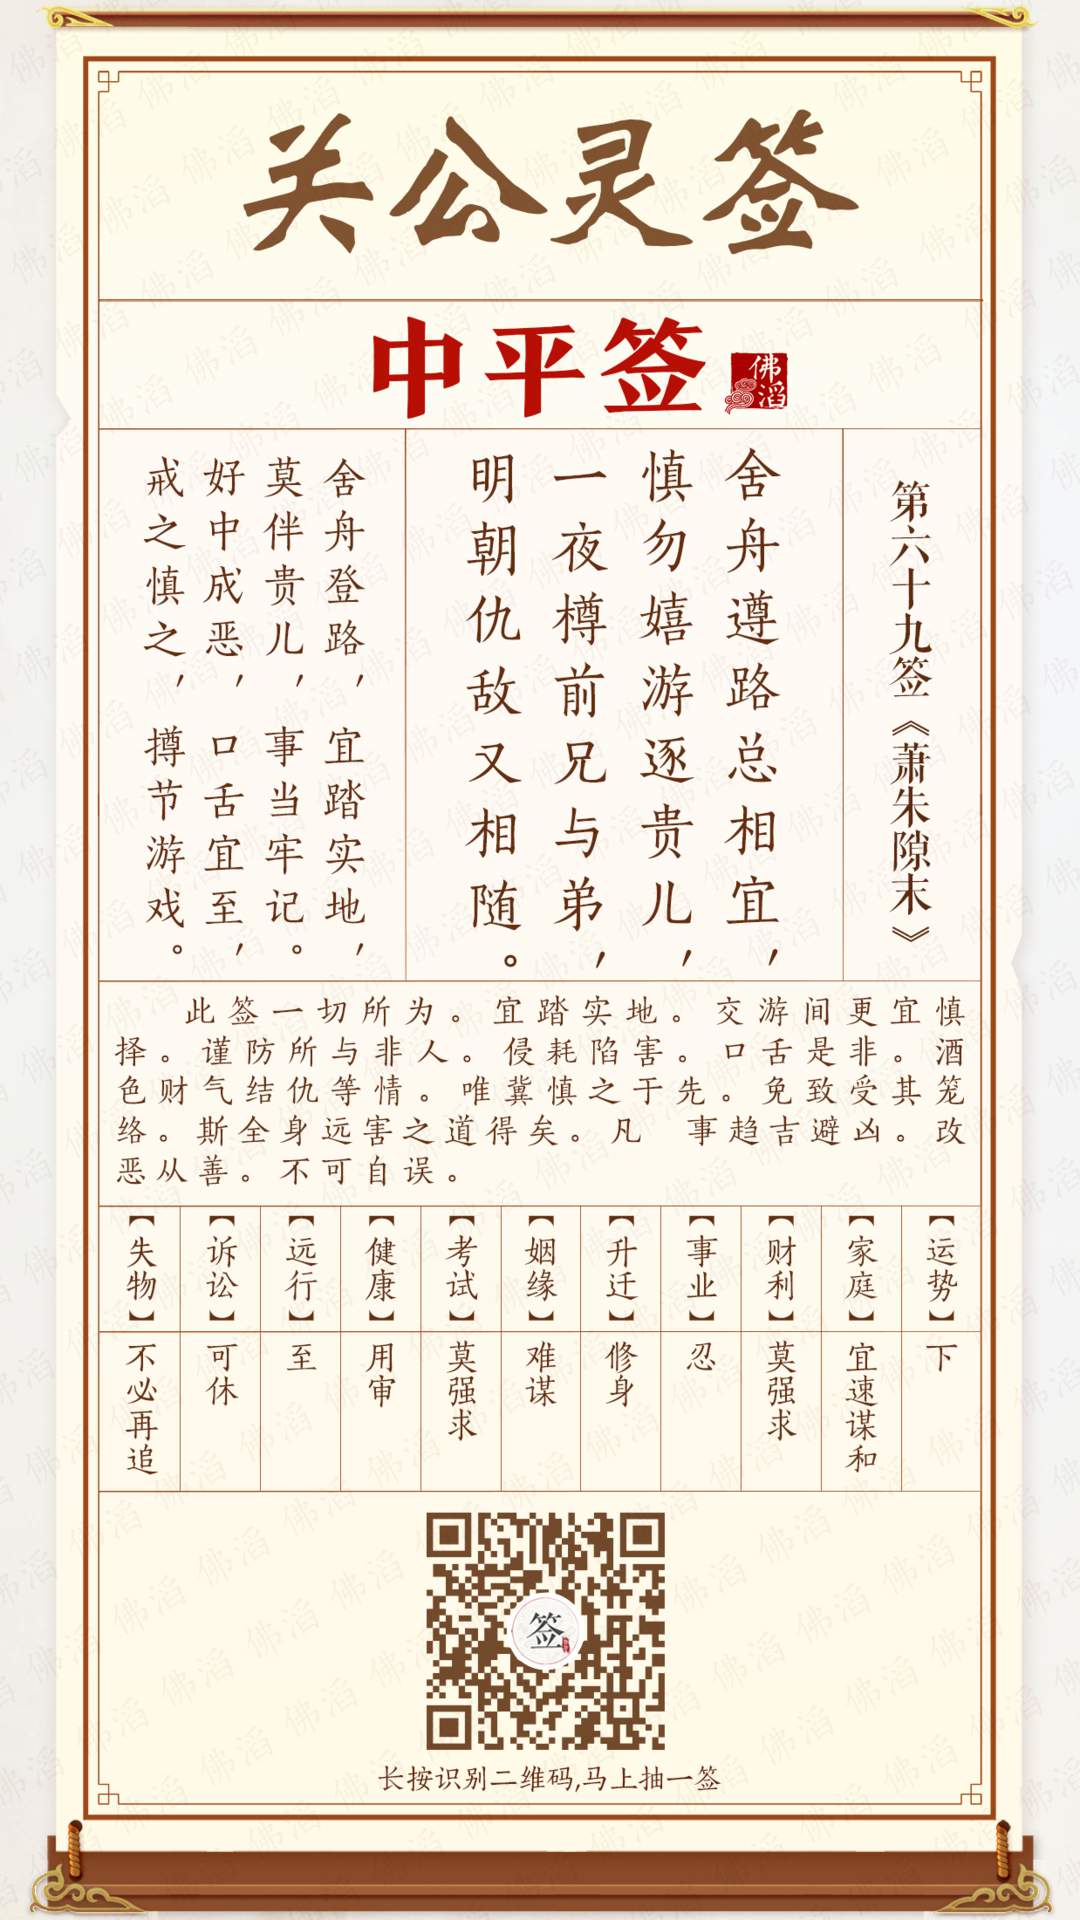 关公灵签
中平签
佛滔
第六十九签《萧朱隙末》
舍舟遵路总相宜，
慎勿嬉游逐贵儿，
一夜樽前兄与弟，
明朝仇敌又相随。
舍舟登路，宜踏实地，
莫伴贵儿，事当牢记。
好中成恶，口舌宜至，
戒之慎之，撙节游戏。
此签一切所为。宜踏实地。交游间更宜慎
择。谨防所与非人。侵耗陷害。口舌是非。酒
色财气结仇等情。唯冀慎之于先。免致受其笼
络。斯全身远害之道得矣。凡 事趋吉避凶。改
恶从善。不可自误。
【运势】
下
【家庭】
宜速谋和
【财利】
莫强求
【事业】
忍
【升迁】
修身
【姻缘】
难谋
【考试】
莫强求
【健康】
用审
【远行】
至
【诉讼】
可休
【失物】
不必再追
签
长按识别二维码,马上抽一签